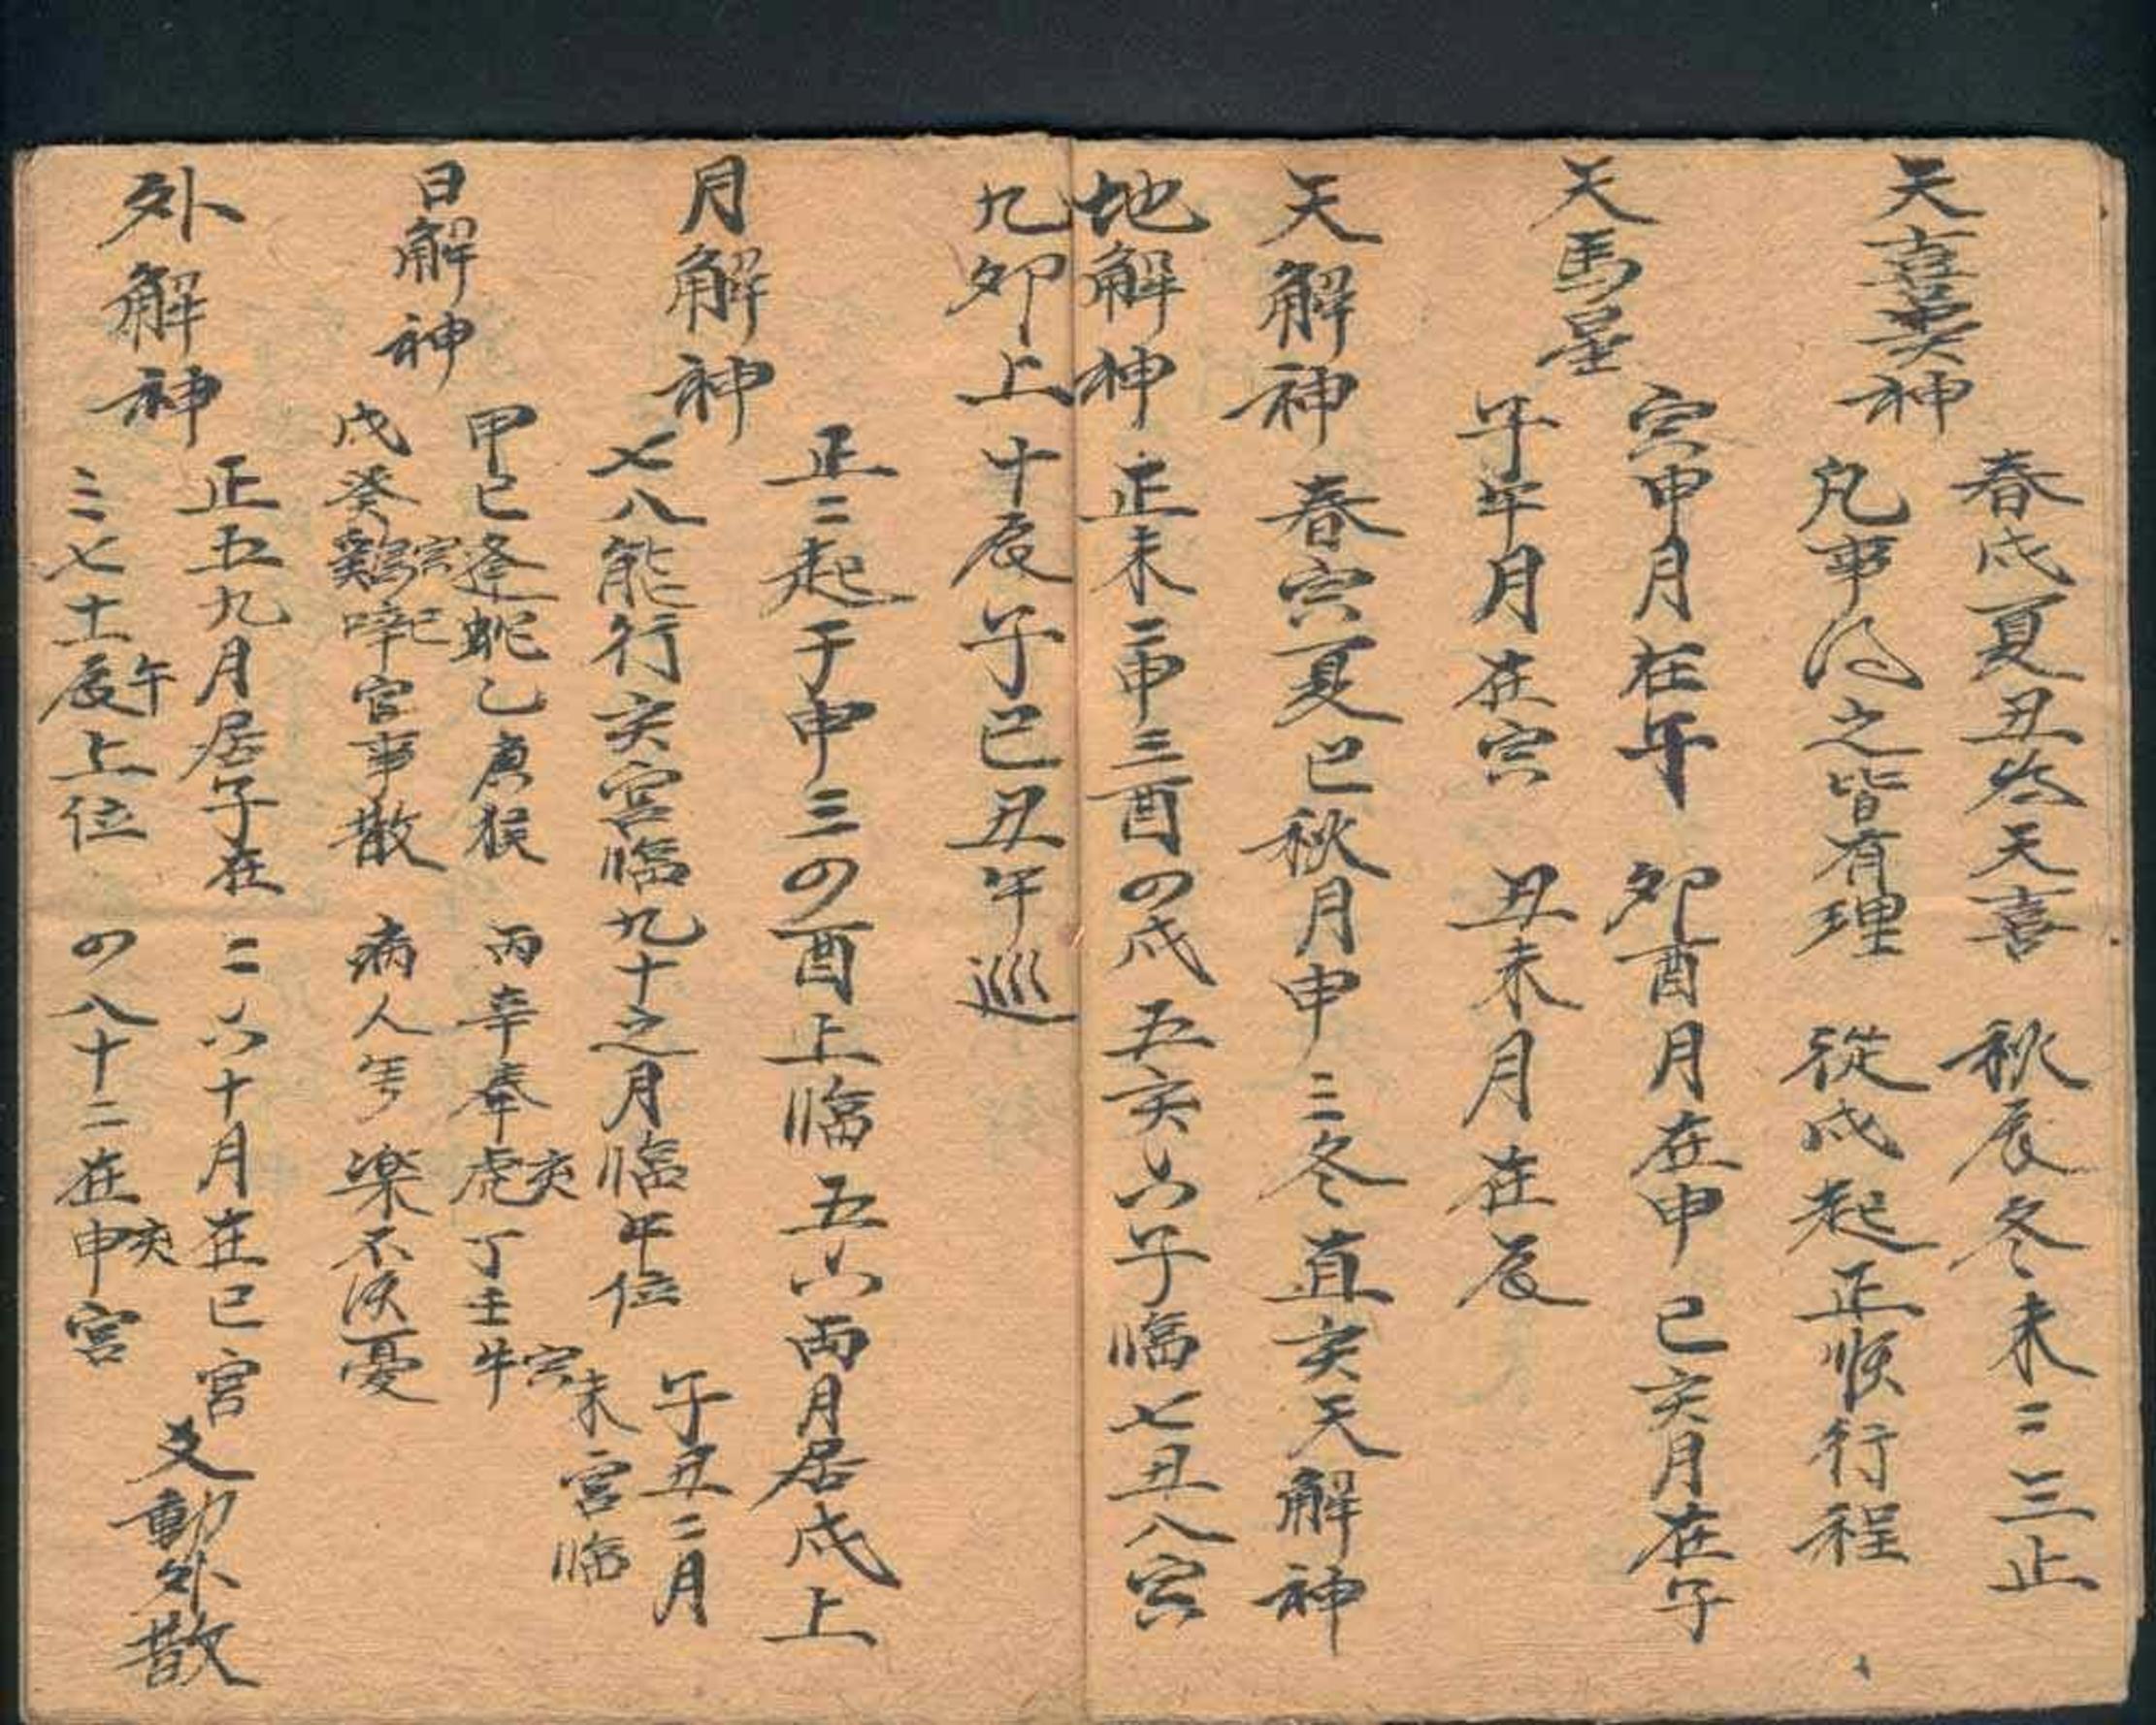 天喜黃神
春戌夏丑為天喜 秋辰冬未二三止
凡事得之皆有理 從戌起正順行程
天馬星
寅申月在午 卯酉月在申 巳亥月在子
子午月在寅 丑未月在辰
天解神 春寅夏巳秋月申 三冬直亥天解神
地解神 正未二申三酉四戌 五亥六子臨七丑八寅
九卯上十辰子巳丑午巡
月解神
正二起于申三四酉上臨 五六兩月居戌上
七八能行亥宮臨九十之月臨午位 子丑二月
未宮臨
日解神
甲已逢蛇乙庚猴 丙辛奉虎亥 丁壬牛寅
戊癸雞寅啼巳官事散 病人 楽不須憂
外解神
正五九月居子在 二六十月在巳宮
三七十一辰午上位 四八十二在申亥宮
爻動外散